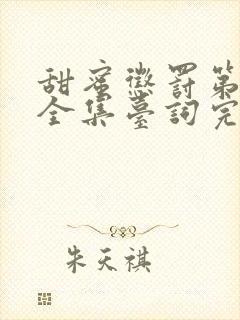 甜蜜懲罰第
全集臺詞完
朱天祺